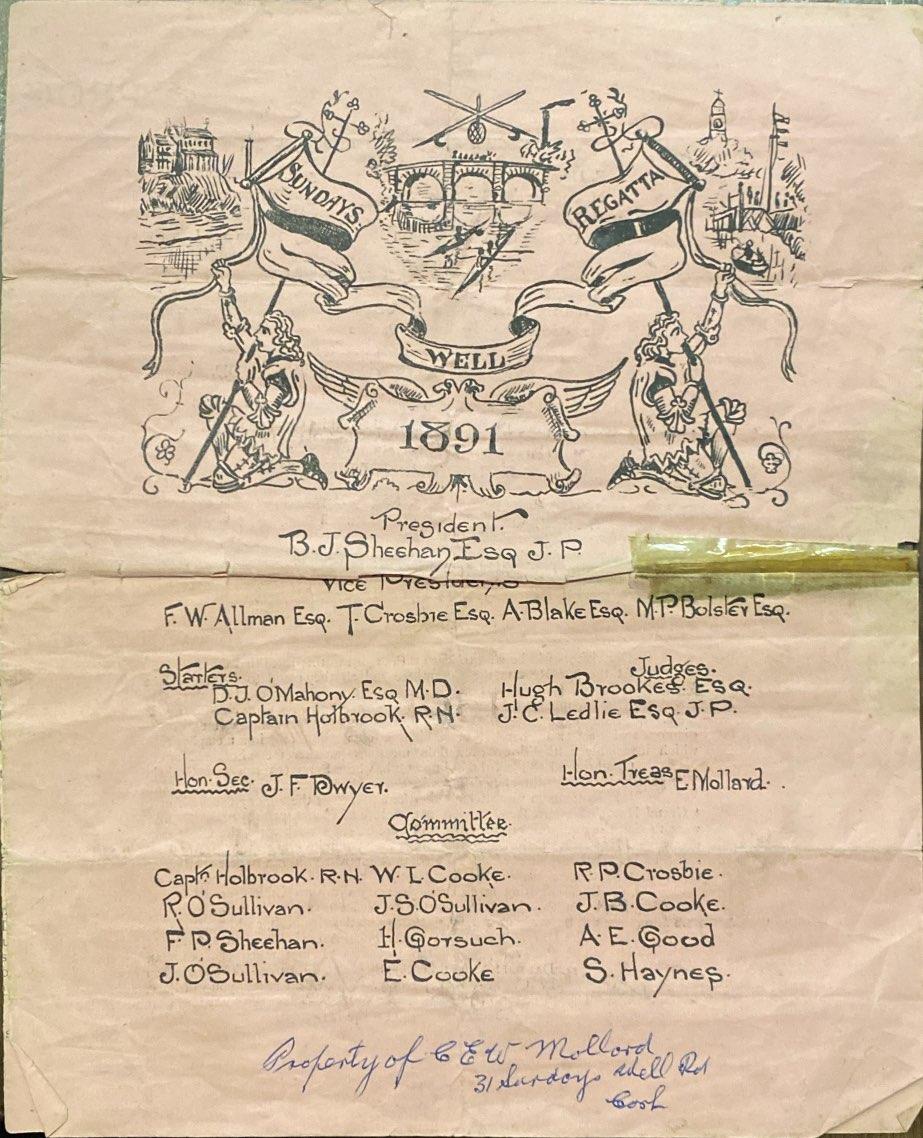 SUNDAYS
REGATTA
WELL
1891
President.
B.J. Sheehan Esq J.P.
Vice Presidents
F.W. Allman Esq. T. Crosbie Esq. A. Blake Esq. M.P. Bolster Esq.
Starters.
D.J. O'Mahony. Esq M.D.
Captain Holbrook. R.N.
Judges.
Hugh Brookes. Esq.
J.C. Ledlie Esq. J.P.
Hon. Sec. J.F. Dwyer.
Hon. Treas E Mollard.
Committee.
Captn. Holbrook. R.N. W.L. Cooke. R.P. Crosbie.
R. O'Sullivan. J.S. O'Sullivan. J.B. Cooke.
F.P. Sheehan. H. Gorsuch. A.E. Good
J. O'Sullivan. E. Cooke S. Haynes.
Property of C E W Mollard
31 Sundays Well Rd
Cork